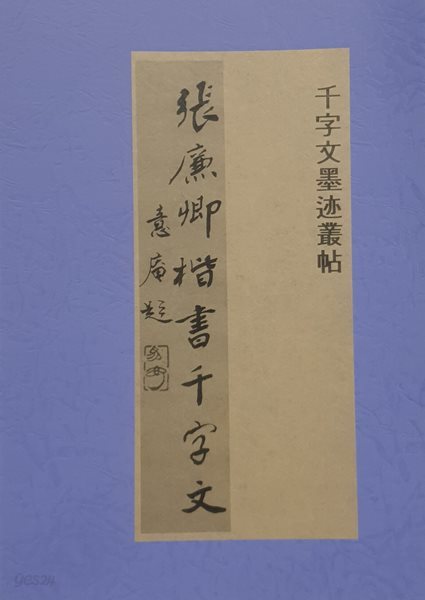 千字文墨迹叢帖
張廉卿楷書千字文
意庵題
yes24